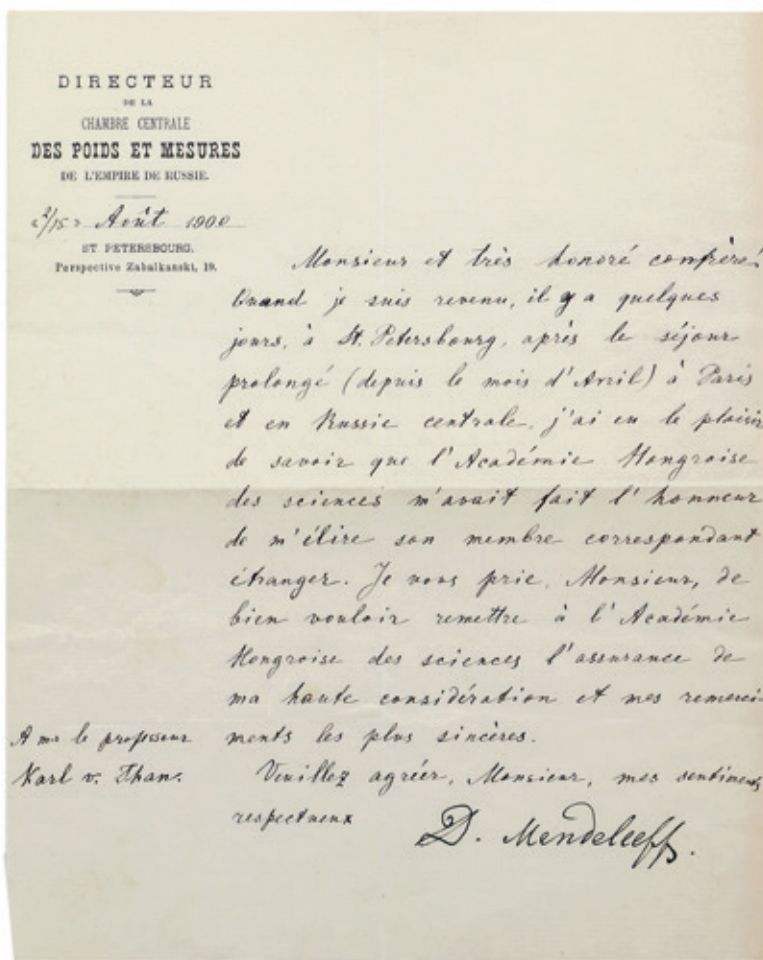 DIRECTEUR
DE LA
CHAMBRE CENTRALE
DES POIDS ET MESURES
DE L'EMPIRE DE RUSSIE.
2/15 Août 1900
ST PETERSBOURG.
Perspective Zabalkanski, 19.
Monsieur et très honoré confrère!
Quand je suis revenu, il y a quelques
jours, à St. Petersbourg, après le séjour
prolongé (depuis le mois d'Avril) à Paris
et en Russie centrale, j'ai eu le plaisir
de savoir que l'Académie Hongroise
des sciences m'avait fait l'honneur
de m'élire son membre correspondant
étranger. Je vous prie, Monsieur, de
bien vouloir remettre à l'Académie
Hongroise des sciences l'assurance de
ma haute considération et mes remerci-
ments les plus sincères.
Veuillez agréer, Monsieur, mes sentiments
respectueux
D. Mendeleeff.
A mr le professeur
Karl v. Than.